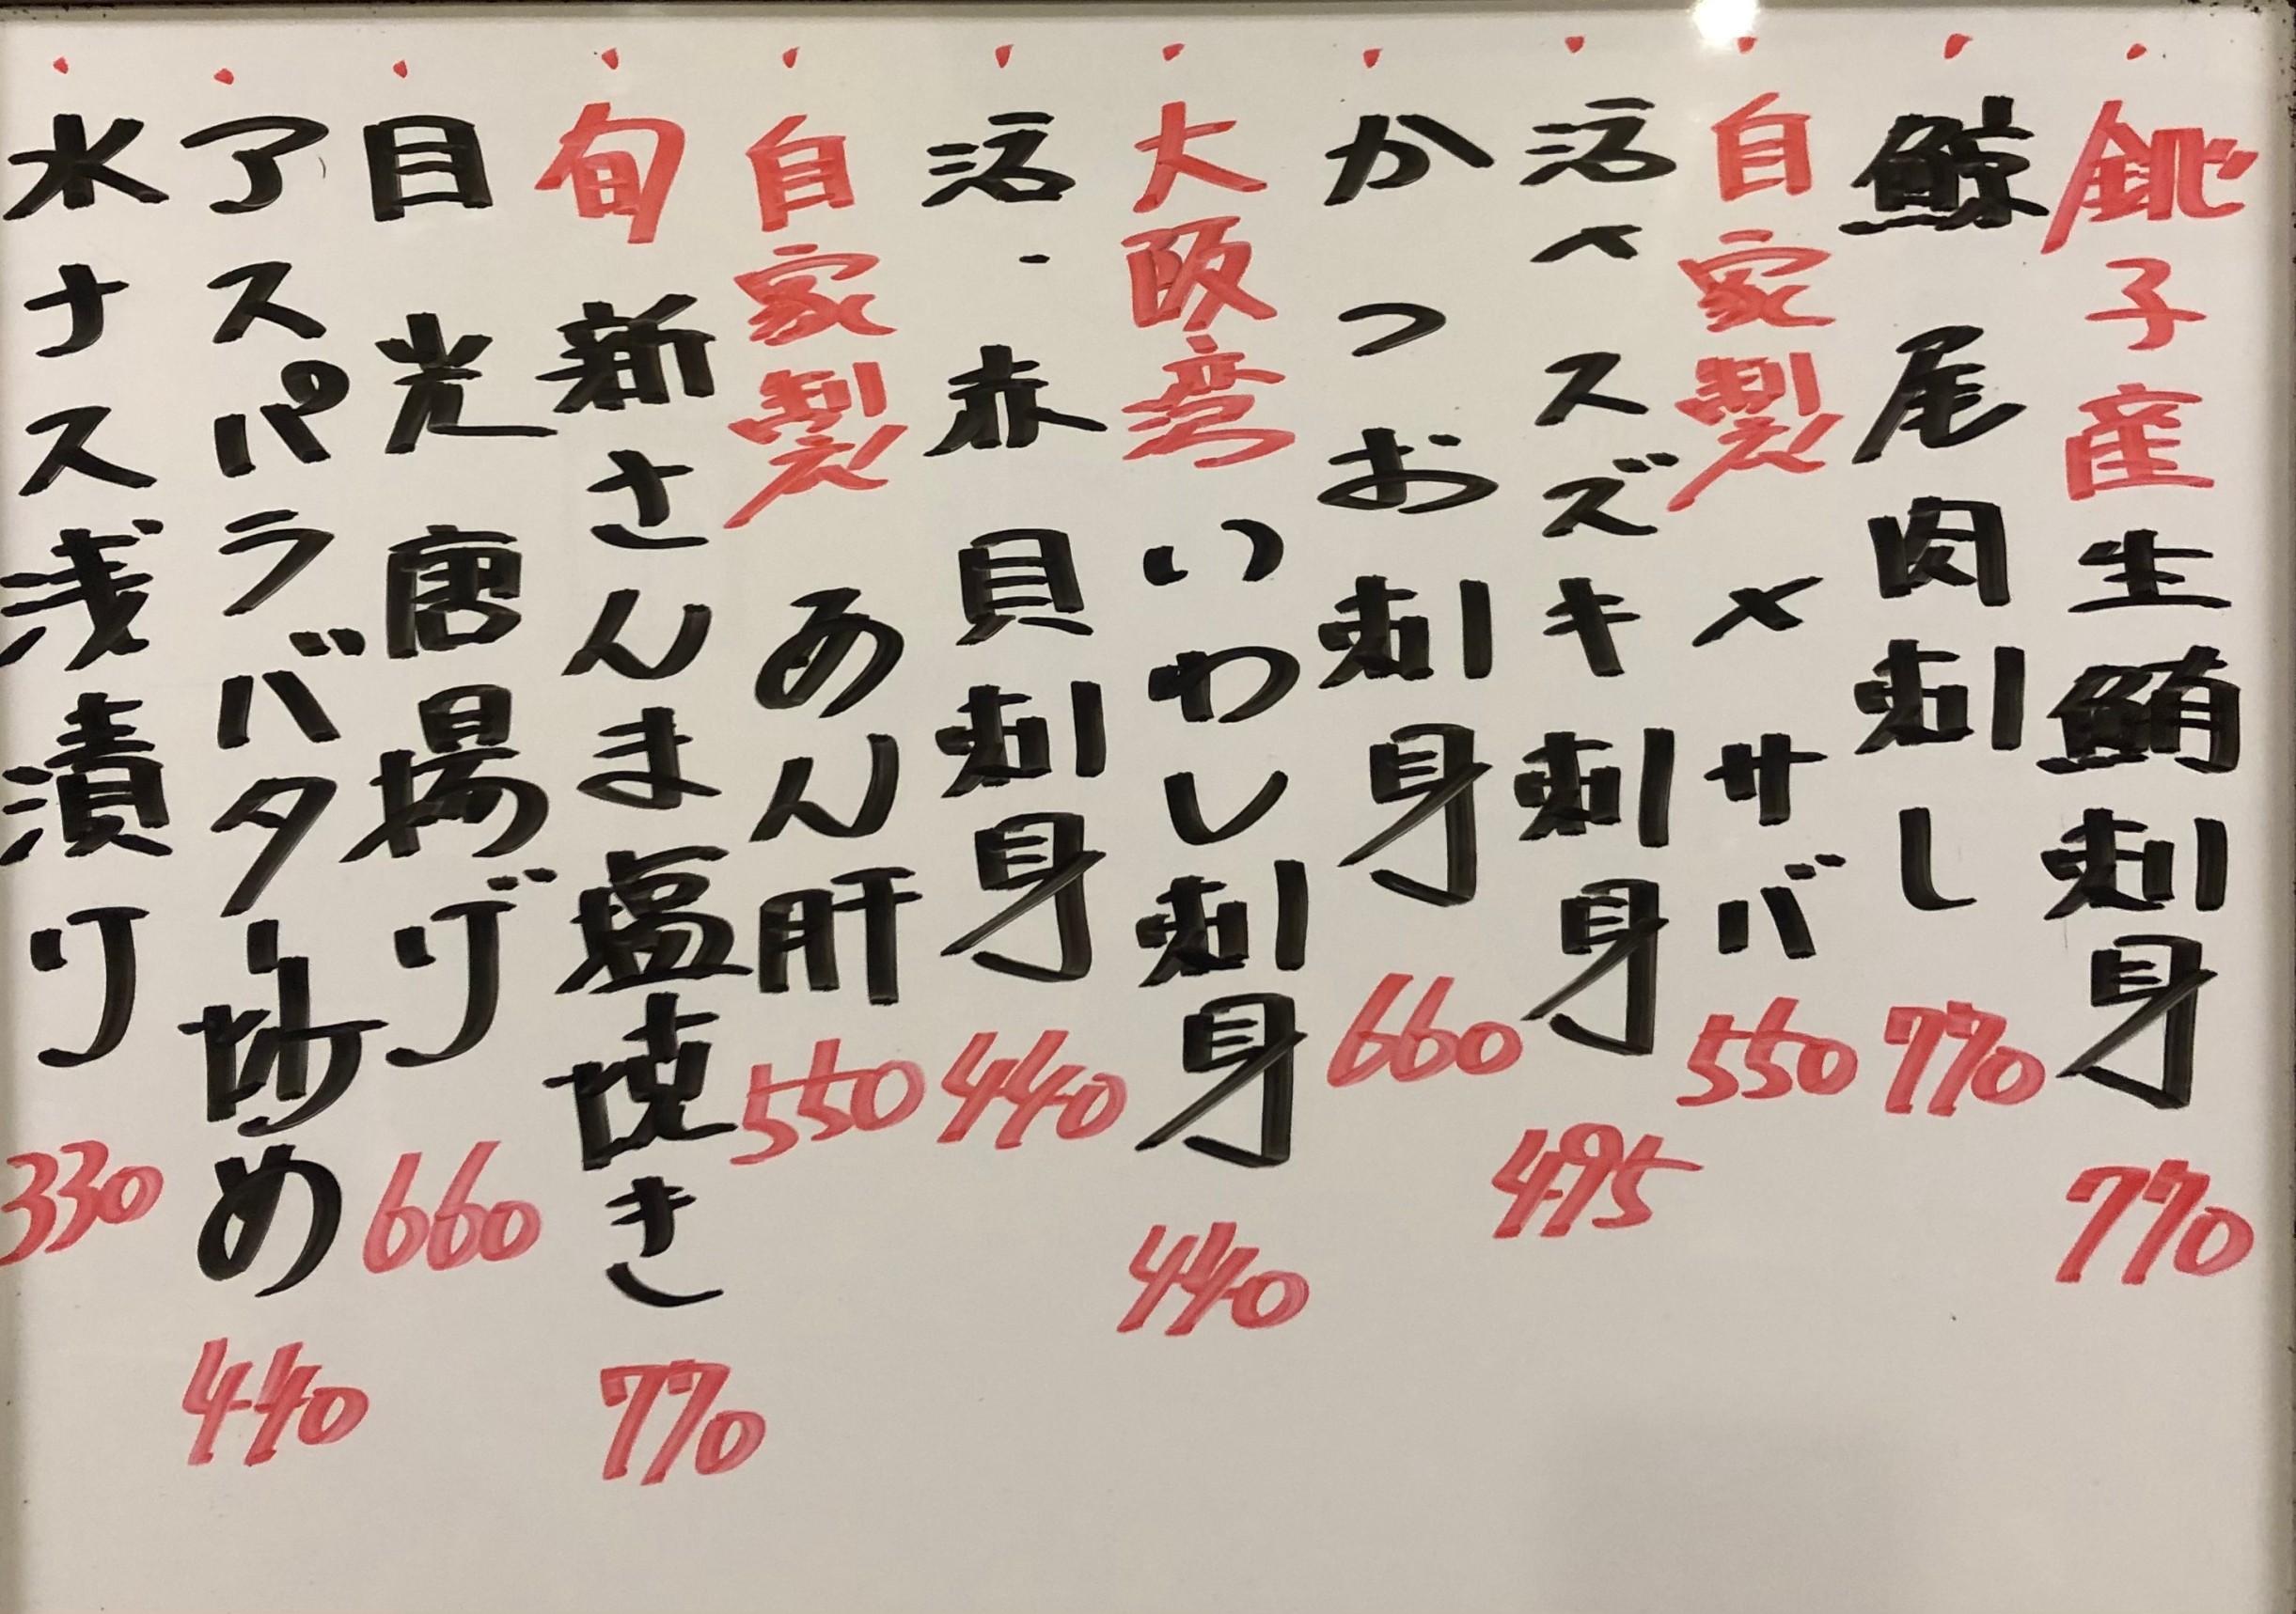 銚子産生鮪刺身 770
鯨尾肉刺し 770
自家製〆サバ 550
活〆スズキ刺身 495
かつお刺身 660
大阪産いわし刺身 440
活・赤貝刺身 440
自家製あん肝 550
旬新さんま塩焼き 770
目光唐揚げ 660
アスパラバター炒め 440
水ナス浅漬り 330